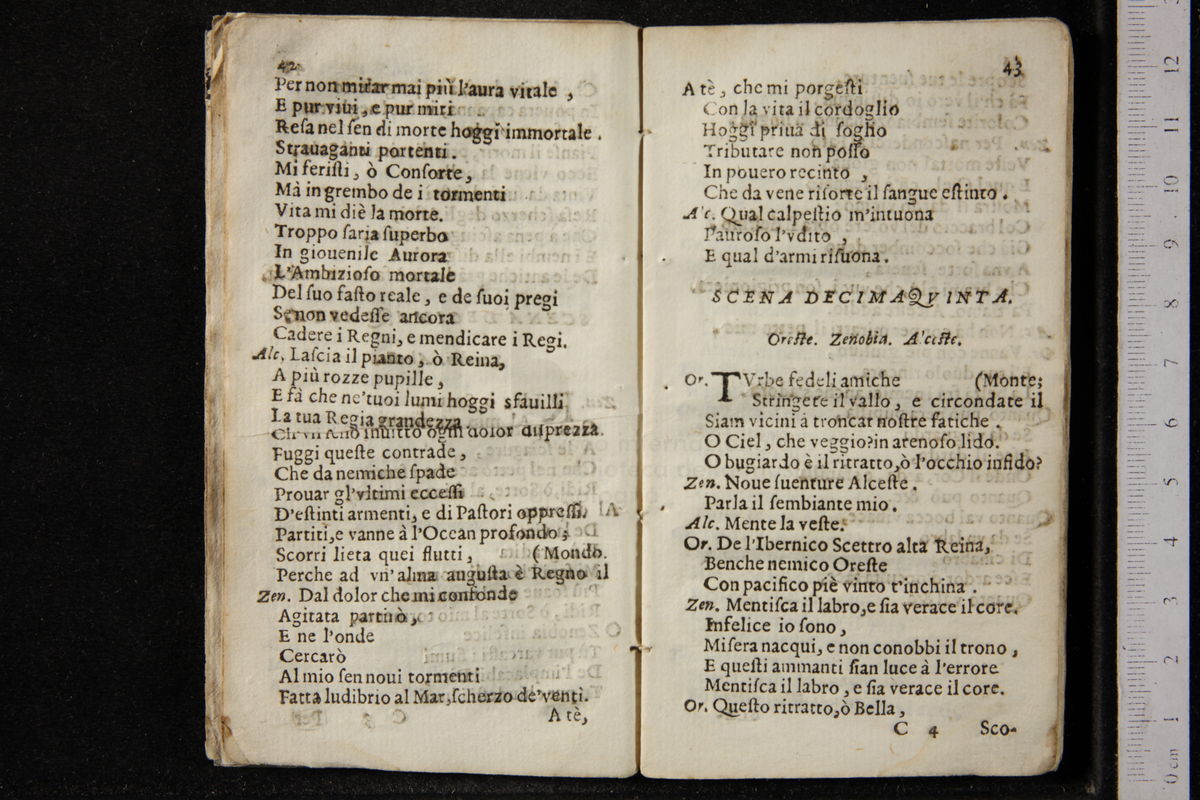 42
Per non mirar mai più l'aura vitale ,
E pur viui , e pur miri
Resa nel sen di morte hoggi immortale .
Strauaganti portenti .
Mi feristi , ò Consorte ,
Mà in grembo de i tormenti
Vita mi diè la morte.
Troppo saria superbo
In giouenile Aurora
L'Ambizioso mortale
Del suo fasto reale , e de suoi pregi
Se non vedesse ancora
Cadere i Regni, e mendicare i Regi.
Alc. Lascia il pianto , ò Reina,
A più rozze pupille ,
E fà che ne'tuoi lumi hoggi sfauilli
La tua Regia grandezza
Ch'vn seno inuitto ogni dolor disprezza.
Fuggi queste contrade ,
Che da nemiche spade
Prouar gl'vltimi eccessi
D'estinti armenti, e di Pastori oppressi.
Partiti,e vanne à l'Ocean profondo ;
Scorri lieta quei flutti , (Mondo.
Perche ad vn'alma augusta è Regno il
Zen. Dal dolor che mi confonde
Agitata partirò ,
E ne l'onde
Cercarò
Al mio sen noui tormenti
Fatta ludibrio al Mar,scherzo de'venti.
A tè,
43
A tè , che mi porgesti
Con la vita il cordoglio
Hoggi priua di soglio
Tributare non posso
In pouero recinto ,
Che da vene risorte il sangue estinto .
Alc. Qual calpestio m'intuona
Pauroso l'vdito ,
E qual d'armi risuona .
SCENA DECIMAQVINTA.
Oreste. Zenobia. Alceste.
Or. TVrbe fedeli amiche (Monte;
Stringete il vallo , e circondate il
Siam vicini à troncar nostre fatiche .
O Ciel , che veggio?in arenoso lido.
O bugiardo è il ritratto,ò l'occhio infido?
Zen. Noue suenture Alceste .
Parla il sembiante mio .
Alc. Mente la veste.
Or. De l'Ibernico Scettro alta Reina,
Benche nemico Oreste
Con pacifico piè vinto t'inchina .
Zen. Mentisca il labro,e sia verace il core.
Infelice io sono ,
Misera nacqui, e non conobbi il trono ,
E questi ammanti sian luce à l'errore
Mentisca il labro , e sia verace il core.
Or. Questo ritratto,ò Bella ,
C 4 Sco-
0 cm 1 2 3 4 5 6 7 8 9 10 11 12